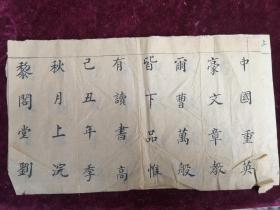 上
中國重英
豪文章教
爾曹萬般
皆下品惟
有讀書高
己丑年季
秋月上浣
黎閣堂劉